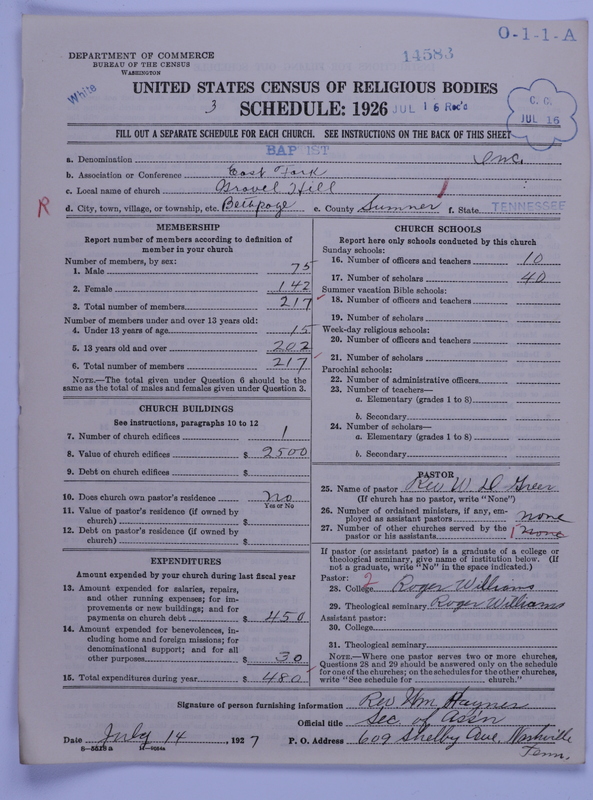 O-1-1-A
14583
DEPARTMENT OF COMMERCE
BUREAU OF THE CENSUS
WASHINGTON
White
UNITED STATES CENSUS OF RELIGIOUS BODIES
3 SCHEDULE: 1926 JUL 16 Rec'd
C. C. JUL 16
FILL OUT A SEPARATE SCHEDULE FOR EACH CHURCH. SEE INSTRUCTIONS ON THE BACK OF THIS SHEET
a. Denomination BAPTIST Inc.
b. Association or Conference East Fork
c. Local name of church Gravel Hill
R d. City, town, village, or township, etc. Bethpage e. County Sumner f. State TENNESSEE
MEMBERSHIP
Report number of members according to definition of member in your church
Number of members, by sex:
1. Male 75
2. Female 142
3. Total number of members 217
Number of members under and over 13 years old:
4. Under 13 years of age 15
5. 13 years old and over 202
6. Total number of members 217
NOTE.—The total given under Question 6 should be the same as the total of males and females given under Question 3.
CHURCH BUILDINGS
See instructions, paragraphs 10 to 12
7. Number of church edifices 1
8. Value of church edifices $ 2500
9. Debt on church edifices $
10. Does church own pastor's residence No
Yes or No
11. Value of pastor's residence (if owned by church) $
12. Debt on pastor's residence (if owned by church) $
EXPENDITURES
Amount expended by your church during last fiscal year
13. Amount expended for salaries, repairs, and other running expenses; for improvements or new buildings; and for payments on church debt $ 450
14. Amount expended for benevolences, including home and foreign missions; for denominational support; and for all other purposes $ 30
15. Total expenditures during year $ 480
CHURCH SCHOOLS
Report here only schools conducted by this church
Sunday schools:
16. Number of officers and teachers 10
17. Number of scholars 40
Summer vacation Bible schools:
18. Number of officers and teachers
19. Number of scholars
Week-day religious schools:
20. Number of officers and teachers
21. Number of scholars
Parochial schools:
22. Number of administrative officers
23. Number of teachers—
a. Elementary (grades 1 to 8)
b. Secondary
24. Number of scholars—
a. Elementary (grades 1 to 8)
b. Secondary
PASTOR
25. Name of pastor Rev W. D. Greer
(If church has no pastor, write "None")
26. Number of ordained ministers, if any, employed as assistant pastors none
27. Number of other churches served by the pastor or his assistants 1 none
If pastor (or assistant pastor) is a graduate of a college or theological seminary, give name of institution below. (If not a graduate, write "No" in the space indicated.)
Pastor:
28. College 2 Roger Williams
29. Theological seminary Roger Williams
Assistant pastor:
30. College
31. Theological seminary
NOTE.—Where one pastor serves two or more churches, Questions 28 and 29 should be answered only on the schedule for one of the churches; on the schedules for the other churches, write "See schedule for church."
Signature of person furnishing information Rev Wm Haynes
Official title Sec of Assn
Date July 14, 1927 P. O. Address 609 Shelby Ave. Nashville
Tenn.